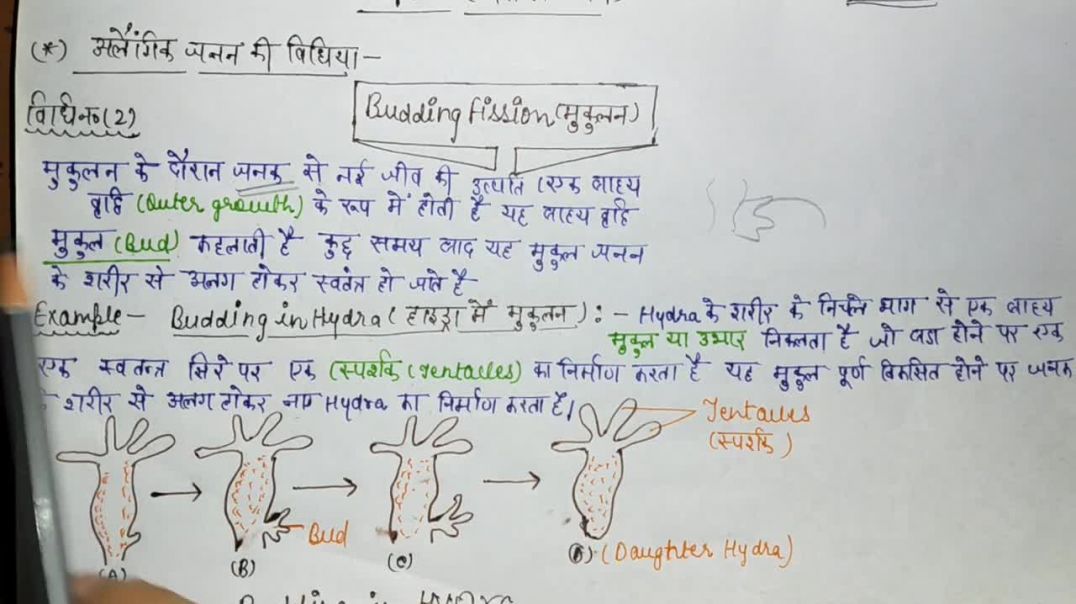 (*) अलैंगिक जनन की विधिया –
विधि नं०(2)
Budding Fission (मुकुलन)
मुकुलन के दौरान जनक से नई जीव की उत्पति (एक बाह्य
वृद्दि (Outer growth) के रूप में होती है यह बाह्य वृद्दि
मुकुल (Bud) कहलाती है कुछ समय बाद यह मुकुल जनन
के शरीर से अलग होकर स्वतंत्र हो जाते है
Example – Budding in Hydra (हाइड्रा में मुकुलन) : – Hydra के शरीर के निचले भाग से एक बाह्य
मुकुल या उभार निकलता है जो बडा होने पर एक
एक स्वतन्त्र सिरे पर एक (स्पर्शक (Tentacles) का निर्माण करता है यह मुकुल पूर्ण विकसित होने पर जनक
के शरीर से अलग होकर नए Hydra का निर्माण करता है।
Tentacles
(स्पर्शक)
Bud
(A)
(B)
(C)
(Daughter Hydra)